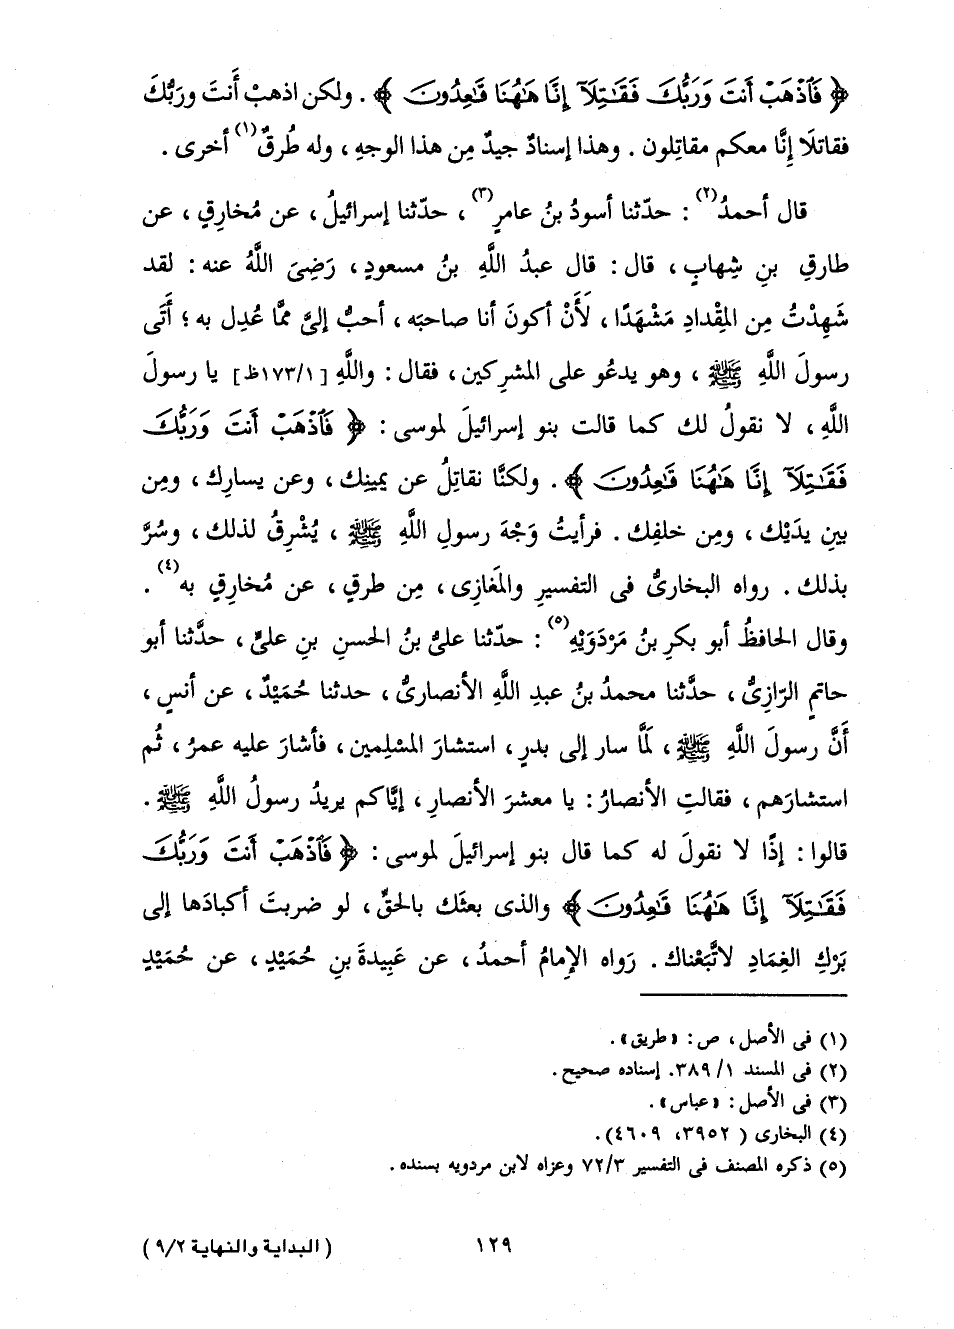 ﴿ فَٱذْهَبْ أَنتَ وَرَبُّكَ فَقَٰتِلَآ إِنَّا هَٰهُنَا قَٰعِدُونَ ﴾ . ولكن اذهبْ أَنتَ وربُّكَ
فقاتلَا إِنَّا معكم مقاتِلون . وهذا إسنادٌ جيدٌ مِن هذا الوجهِ ، وله طُرقٌ(١) أخرى .
قال أحمدُ(٢) : حدّثنا أسودُ بنُ عامرٍ(٣) ، حدّثنا إسرائيلُ ، عن مُخارِقٍ ، عن
طارقِ بنِ شِهابٍ ، قال : قال عبدُ اللَّهِ بنُ مسعودٍ ، رَضِىَ اللَّهُ عنه : لقد
شَهِدْتُ مِن المِقْدادِ مَشْهَدًا ، لَأَنْ أكونَ أنا صاحبَه ، أحبُّ إلىَّ ممَّا عُدِل به ؛ أَتَى
رسولَ اللَّهِ ﷺ ، وهو يدعُو على المشركين ، فقال : واللَّهِ [١/١٧٣ظ] يا رسولَ
اللَّهِ ، لا نقولُ لك كما قالت بنو إسرائيلَ لموسى : ﴿ فَٱذْهَبْ أَنتَ وَرَبُّكَ
فَقَٰتِلَآ إِنَّا هَٰهُنَا قَٰعِدُونَ ﴾ . ولكنَّا نقاتِلُ عن يمينِك ، وعن يسارِك ، ومِن
بينِ يدَيْك ، ومِن خلفِك . فرأيتُ وَجْهَ رسولِ اللَّهِ ﷺ ، يُشْرِقُ لذلك ، وسُرَّ
بذلك . رواه البخارىُّ فى التفسيرِ والمَغازِى ، مِن طرقٍ ، عن مُخارِقٍ به(٤) .
وقال الحافظُ أبو بكرِ بنُ مَرْدَوَيْهِ(٥) : حدّثنا علىُّ بنُ الحسنِ بنِ علىٍّ ، حدَّثنا أبو
حاتمٍ الرّازِىُّ ، حدَّثنا محمدُ بنُ عبدِ اللَّهِ الأنصارىُّ ، حدثنا حُمَيْدٌ ، عن أنسٍ ،
أَنَّ رسولَ اللَّهِ ﷺ ، لَمَّا سار إلى بدرٍ ، استشارَ المسْلِمين ، فأشارَ عليه عمرُ ، ثُم
استشارَهم ، فقالتِ الأنصارُ : يا معشرَ الأنصارِ ، إيَّاكم يريدُ رسولُ اللَّهِ ﷺ .
قالوا : إذًا لا نقولَ له كما قال بنو إسرائيلَ لموسى : ﴿ فَٱذْهَبْ أَنتَ وَرَبُّكَ
فَقَٰتِلَآ إِنَّا هَٰهُنَا قَٰعِدُونَ ﴾ والذى بعثَك بالحقِّ ، لو ضربتَ أكبادَها إلى
بَرْكِ الغِمَادِ لاتَّبَعْناك . رَواه الإمامُ أحمدُ ، عن عَبِيدةَ بنِ حُمَيْدٍ ، عن حُمَيْدٍ
(١) فى الأصل ، ص : «طريق» .
(٢) فى المسند ١/ ٣٨٩. إسناده صحيح .
(٣) فى الأصل : «عباس» .
(٤) البخارى ( ٣٩٥٢، ٤٦٠٩).
(٥) ذكره المصنف فى التفسير ٣/ ٧٢ وعزاه لابن مردويه بسنده .
١٢٩
( البداية والنهاية ٩/٢ )